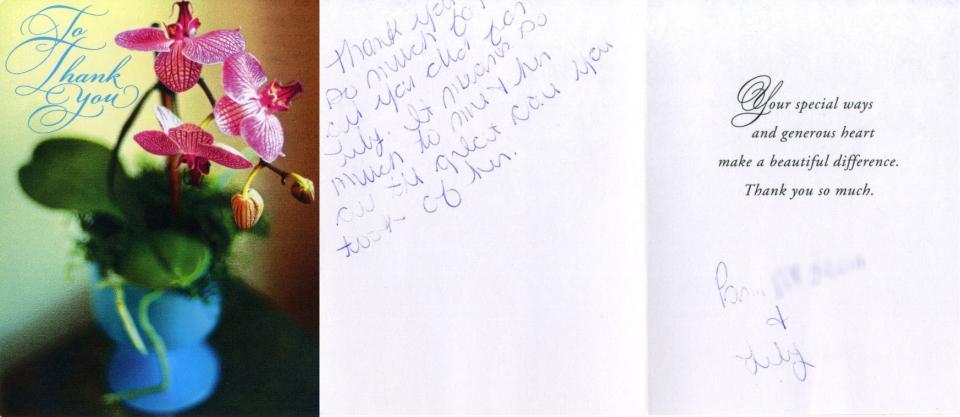 To
Thank
You
Thank you
so much for
all you did for
Lily. It means so
much to me & her
all the great care you
took of her.
Your special ways
and generous heart
make a beautiful difference.
Thank you so much.
Pam
&
Lily